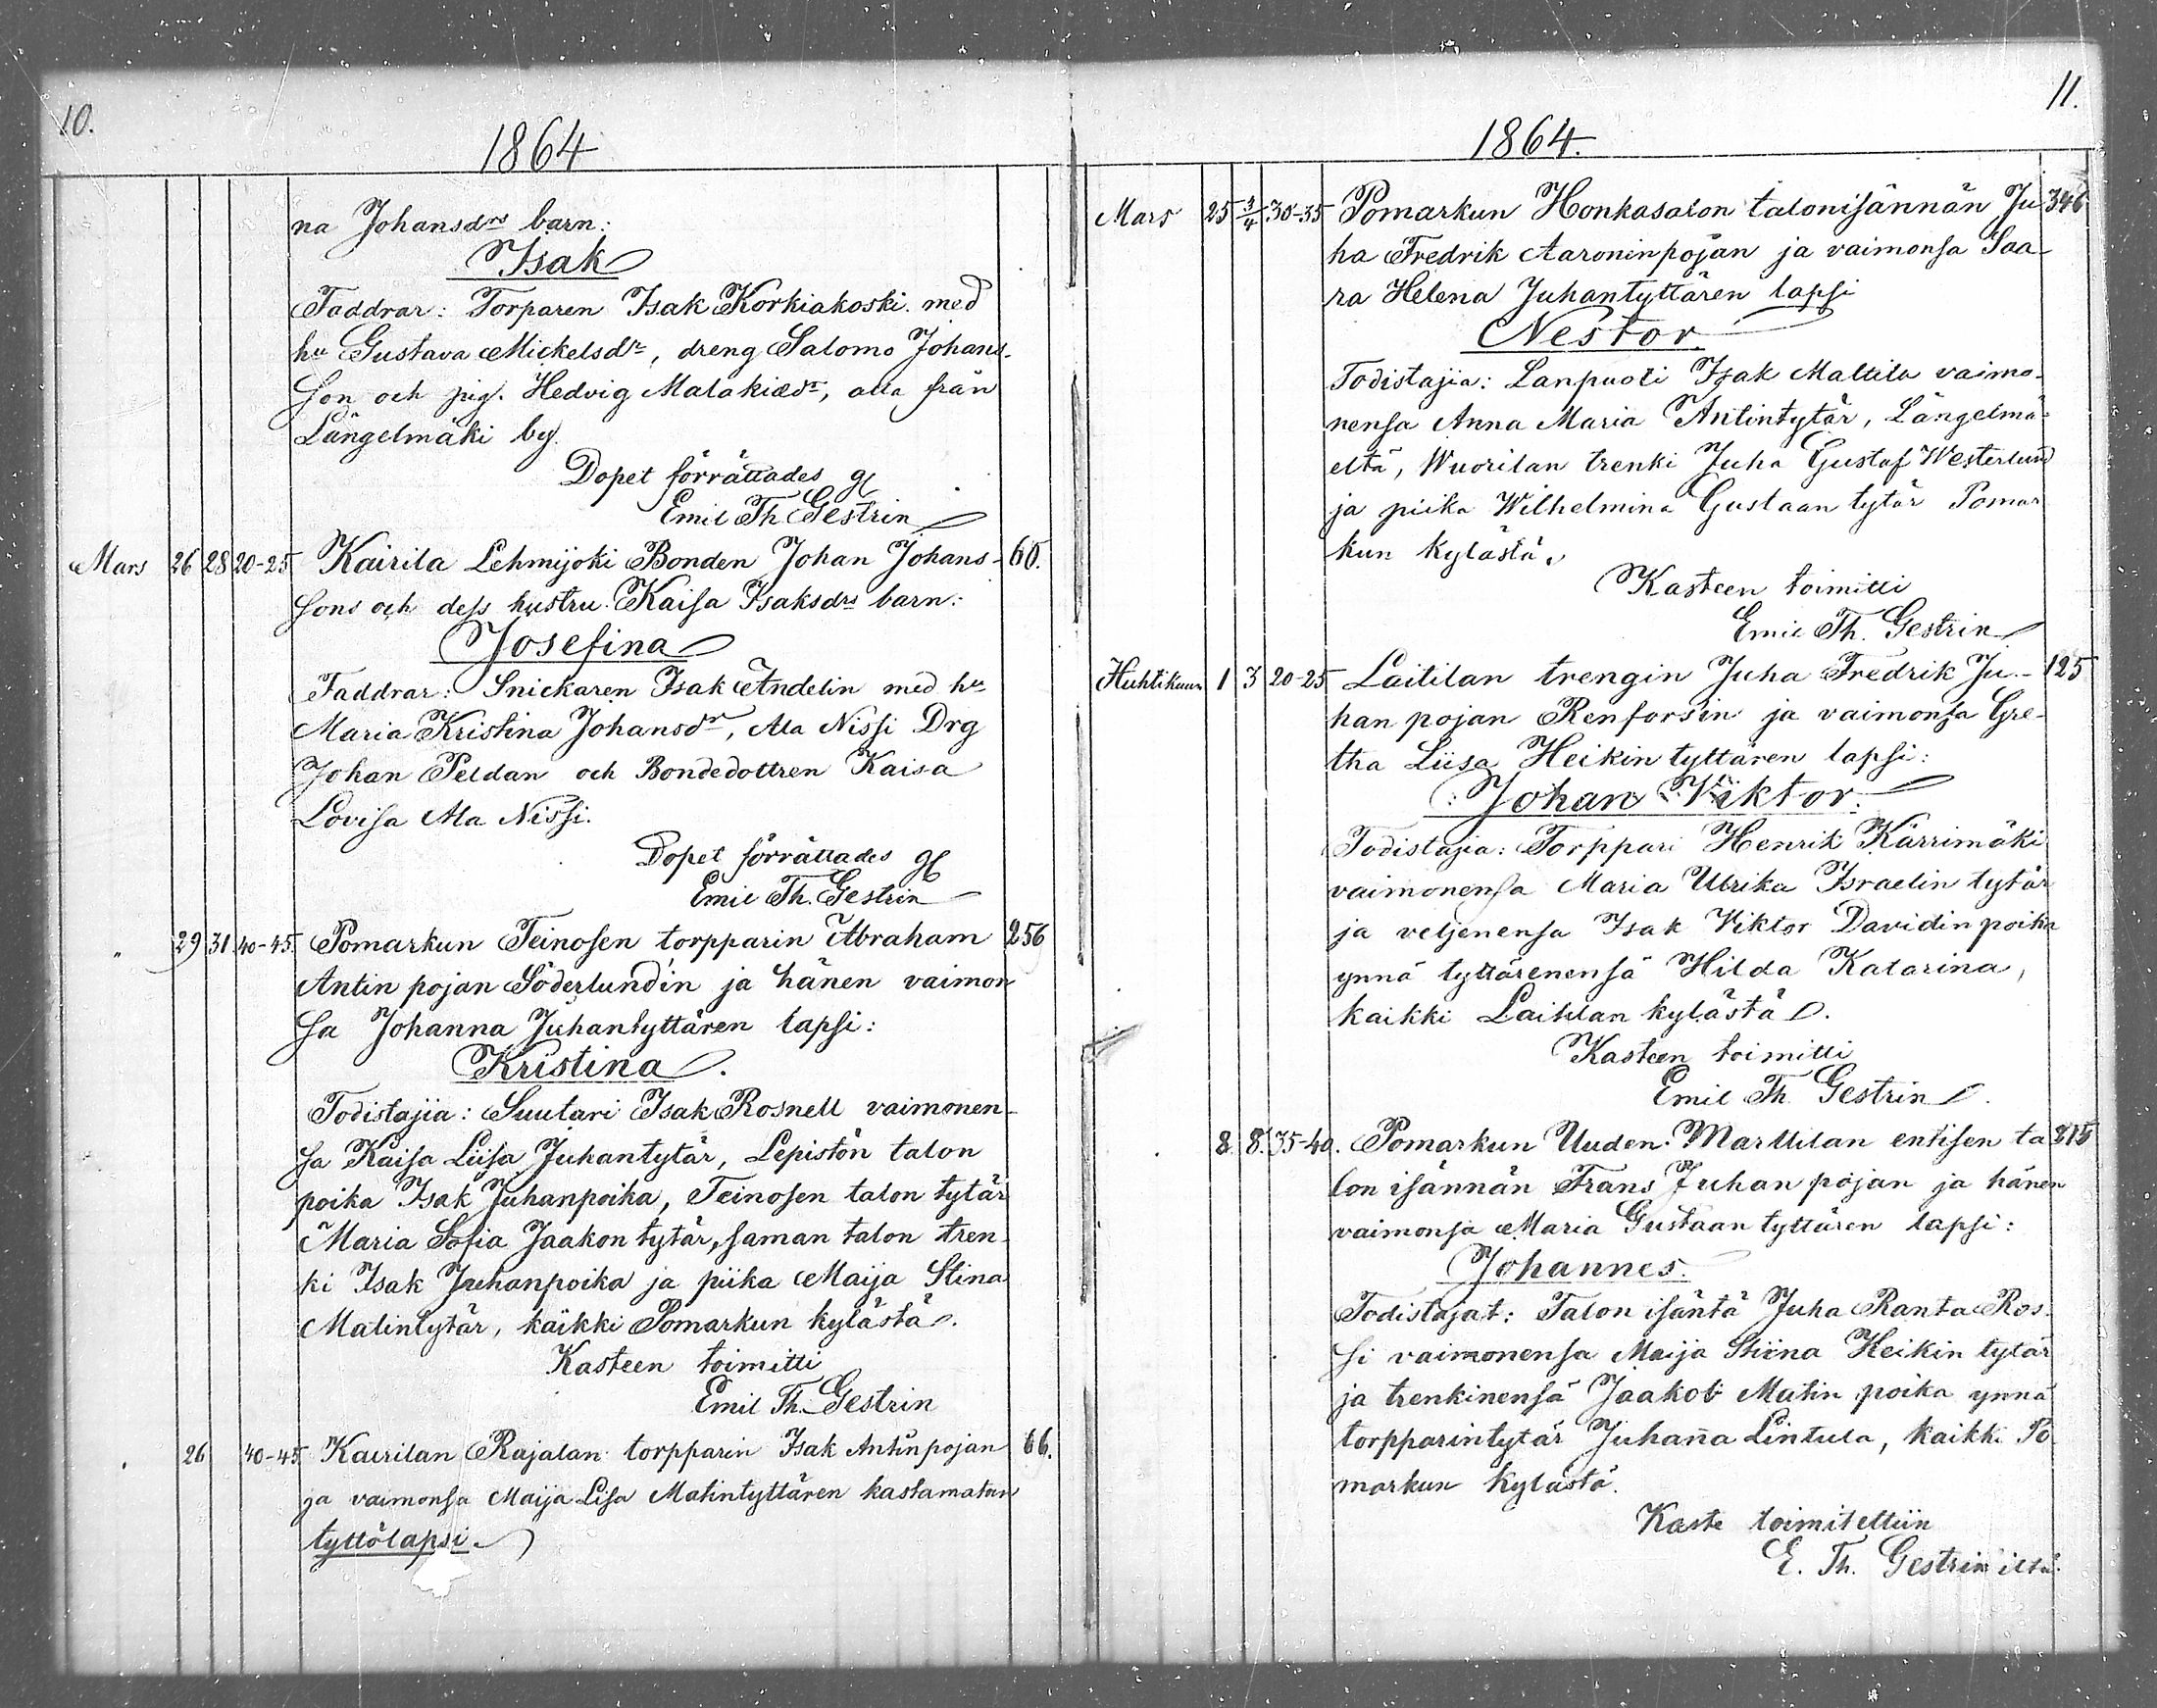 10.
1864
na Johansdrs barn:
Isak
Faddrar: Torparen Isak Korkiakoski med
hu Gustava Mickelsdr, dreng Salomo Johans-
son och pig. Hedvig Malakiedr, alla från
Längelmäki by.
Dopet förrättades af
Emil Th Gestrin
Mars 26 28 20-25 Kairila Lehmijoki Bonden Johan Johans- 60.
sons och dess hustru Kaisa Isaksdrs barn:
Josefina
Faddrar: Snickaren Isak Andelin med hu
Maria Kristina Johansdr, Ala Nissi Drg
Johan Peldan och Bondedottren Kaisa
Lovisa Ala Nissi.
Dopet förrättades af
Emil Th. Gestrin
" 29 31 40-45. Pomarkun Teinosen torpparin Abraham 256
Antin pojan Söderlundin ja hänen vaimon
sa Johanna Juhantyttären lapsi:
Kristina.
Todistajia: Suutari Isak Rosnell vaimonen-
sa Kaisa Liisa Juhantytär, Lepistön talon
poika Isak Juhanpoika, Teinosen talon tytär
Maria Sofia Jaakon tytär, saman talon tren-
ki Isak Juhanpoika ja piika Maija Stina
Matintytär, kaikki Pomarkun kylästä.
Kasteen toimitti
Emil Th. Gestrin
" 26 40-45 Kairilan Rajalan torpparin Isak Antin pojan 66.
ja vaimonsa Maija Lisa Matintyttären kastamatan
tyttölapsi.
11.
1864.
Mars 25 3/4 30-35 Pomarkun Honkasalon talonisännän Ju 346
ha Fredrik Aaroninpojan ja vaimonsa Saa-
ra Helena Juhantyttären lapsi
Nestor
Todistajia: Lanpuoti Isak Maltila vaimo-
nensa Anna Maria Antintytär, Längelmä-
eltä, Wuorilan trenki Juha Gustaf Westerlund
ja piika Wilhelmina Gustaan tytär Pomar
kun kylästä.
Kasteen toimitti
Emil Th. Gestrin
Huhtikuun 1 3 20-25 Laitilan trengin Juha Fredrik Ju- 125
han pojan Renforsin ja vaimonsa Gre-
tha Liisa Heikin tyttären lapsi:
Johan Viktor.
Todistajia: Torppari Henrik Kärrimäki
vaimonensa Maria Ulrika Israelin tytär
ja veljenensa Isak Viktor Davidin poika
ynnä tyttärenensä Hilda Katarina,
kaikki Laitilan kylästä.
Kasteen toimitti
Emil Th Gestrin.
8. 8. 35-40. Pomarkun Uuden Marttilan entisen ta 215
lon isännän Frans Juhan pojan ja hänen
vaimonsa Maria Gustaan tyttären lapsi:
Johannes.
Todistajat: Talon isäntä Juha Ranta Ros-
si vaimonensa Maija Stiina Heikin tytär
ja trenkinensä Jaakob Matin poika ynnä
torpparintytär Juhan̄a Lintula, kaikki Po
markun kylästä.
Kaste toimitettiin
E. Th. Gestrin iltä.